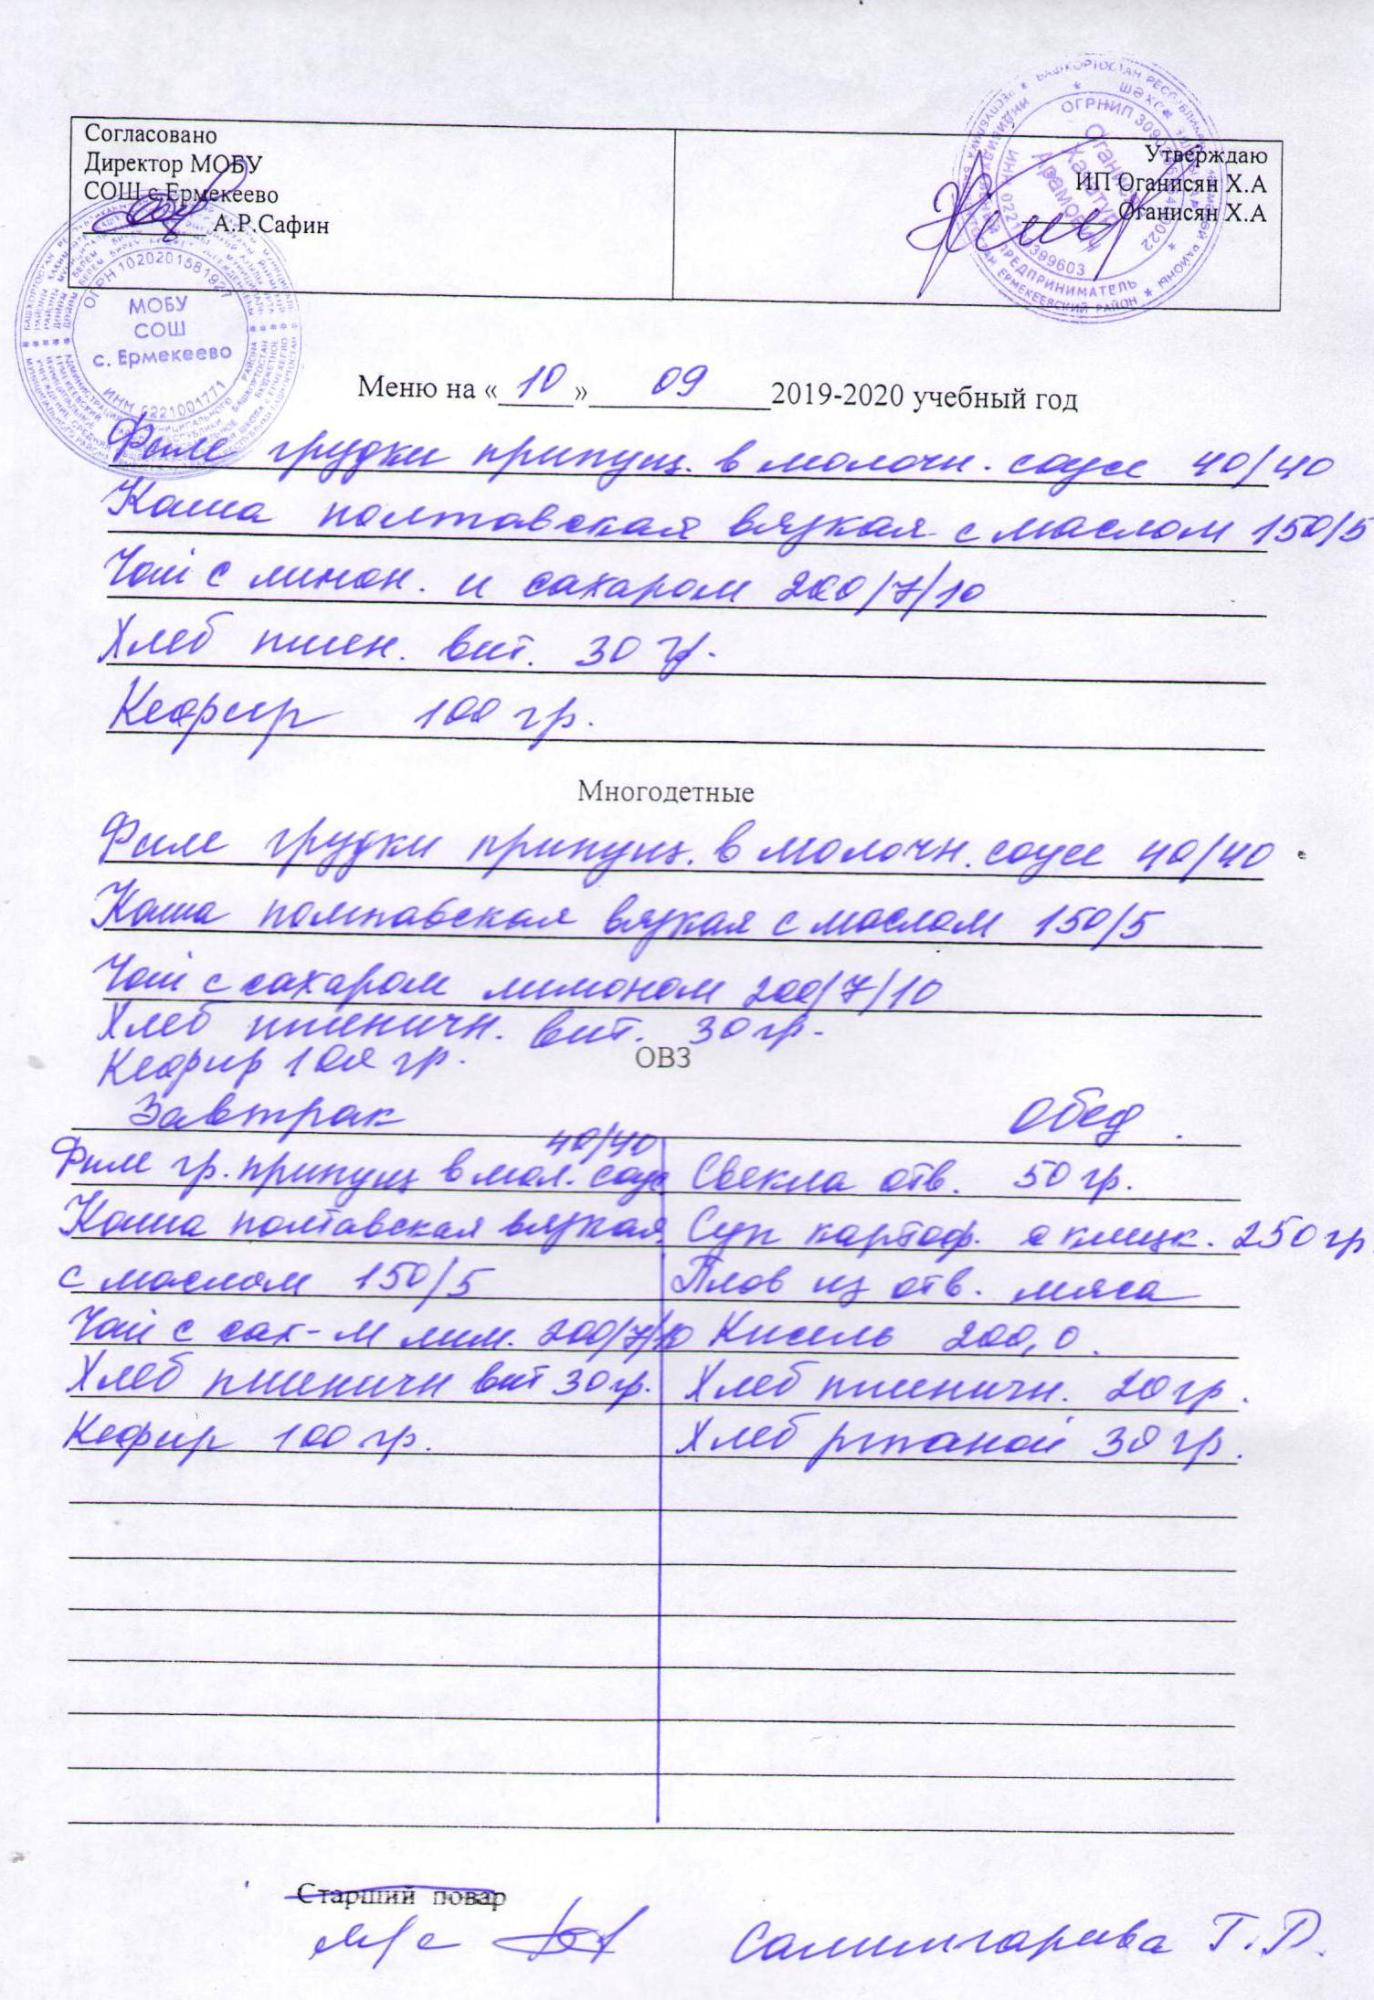 Согласовано
Директор МОБУ
СОШ с.Ермекеево
А.Р.Сафин
Утверждаю
ИП Оганисян Х.А
Оганисян Х.А
ОГРН 1020201581927
МОБУ
СОШ
с. Ермекеево
ИНН 0221001771
Меню на «10» 09 2019-2020 учебный год
Филе грудки припущ. в молочн. соусе 40/40
Каша полтавская вязкая с маслом 150/5
Чай с лимон. и сахаром 200/7/10
Хлеб пшен. вит. 30 гр.
Кефир 100 гр.
Многодетные
Филе грудки припущ. в молочн. соусе 40/40
Каша полтавская вязкая с маслом 150/5
Чай с сахаром лимоном 200/7/10
Хлеб пшеничн. вит. 30 гр.
Кефир 100 гр.
ОВЗ
Завтрак
Обед.
40/40
Филе гр. припущ в мол. соус
Свекла отв. 50 гр.
Каша полтавская вязкая
Суп картоф. с клецк. 250 гр
с маслом 150/5
Плов из отв. мяса
Чай с сах-м лим. 200/7/10
Кисель 200,0.
Хлеб пшеничн вит 30 гр.
Хлеб пшеничн. 20 гр.
Кефир 100 гр.
Хлеб ржаной 30 гр.
Старший повар
Салимгарива Г.Р.